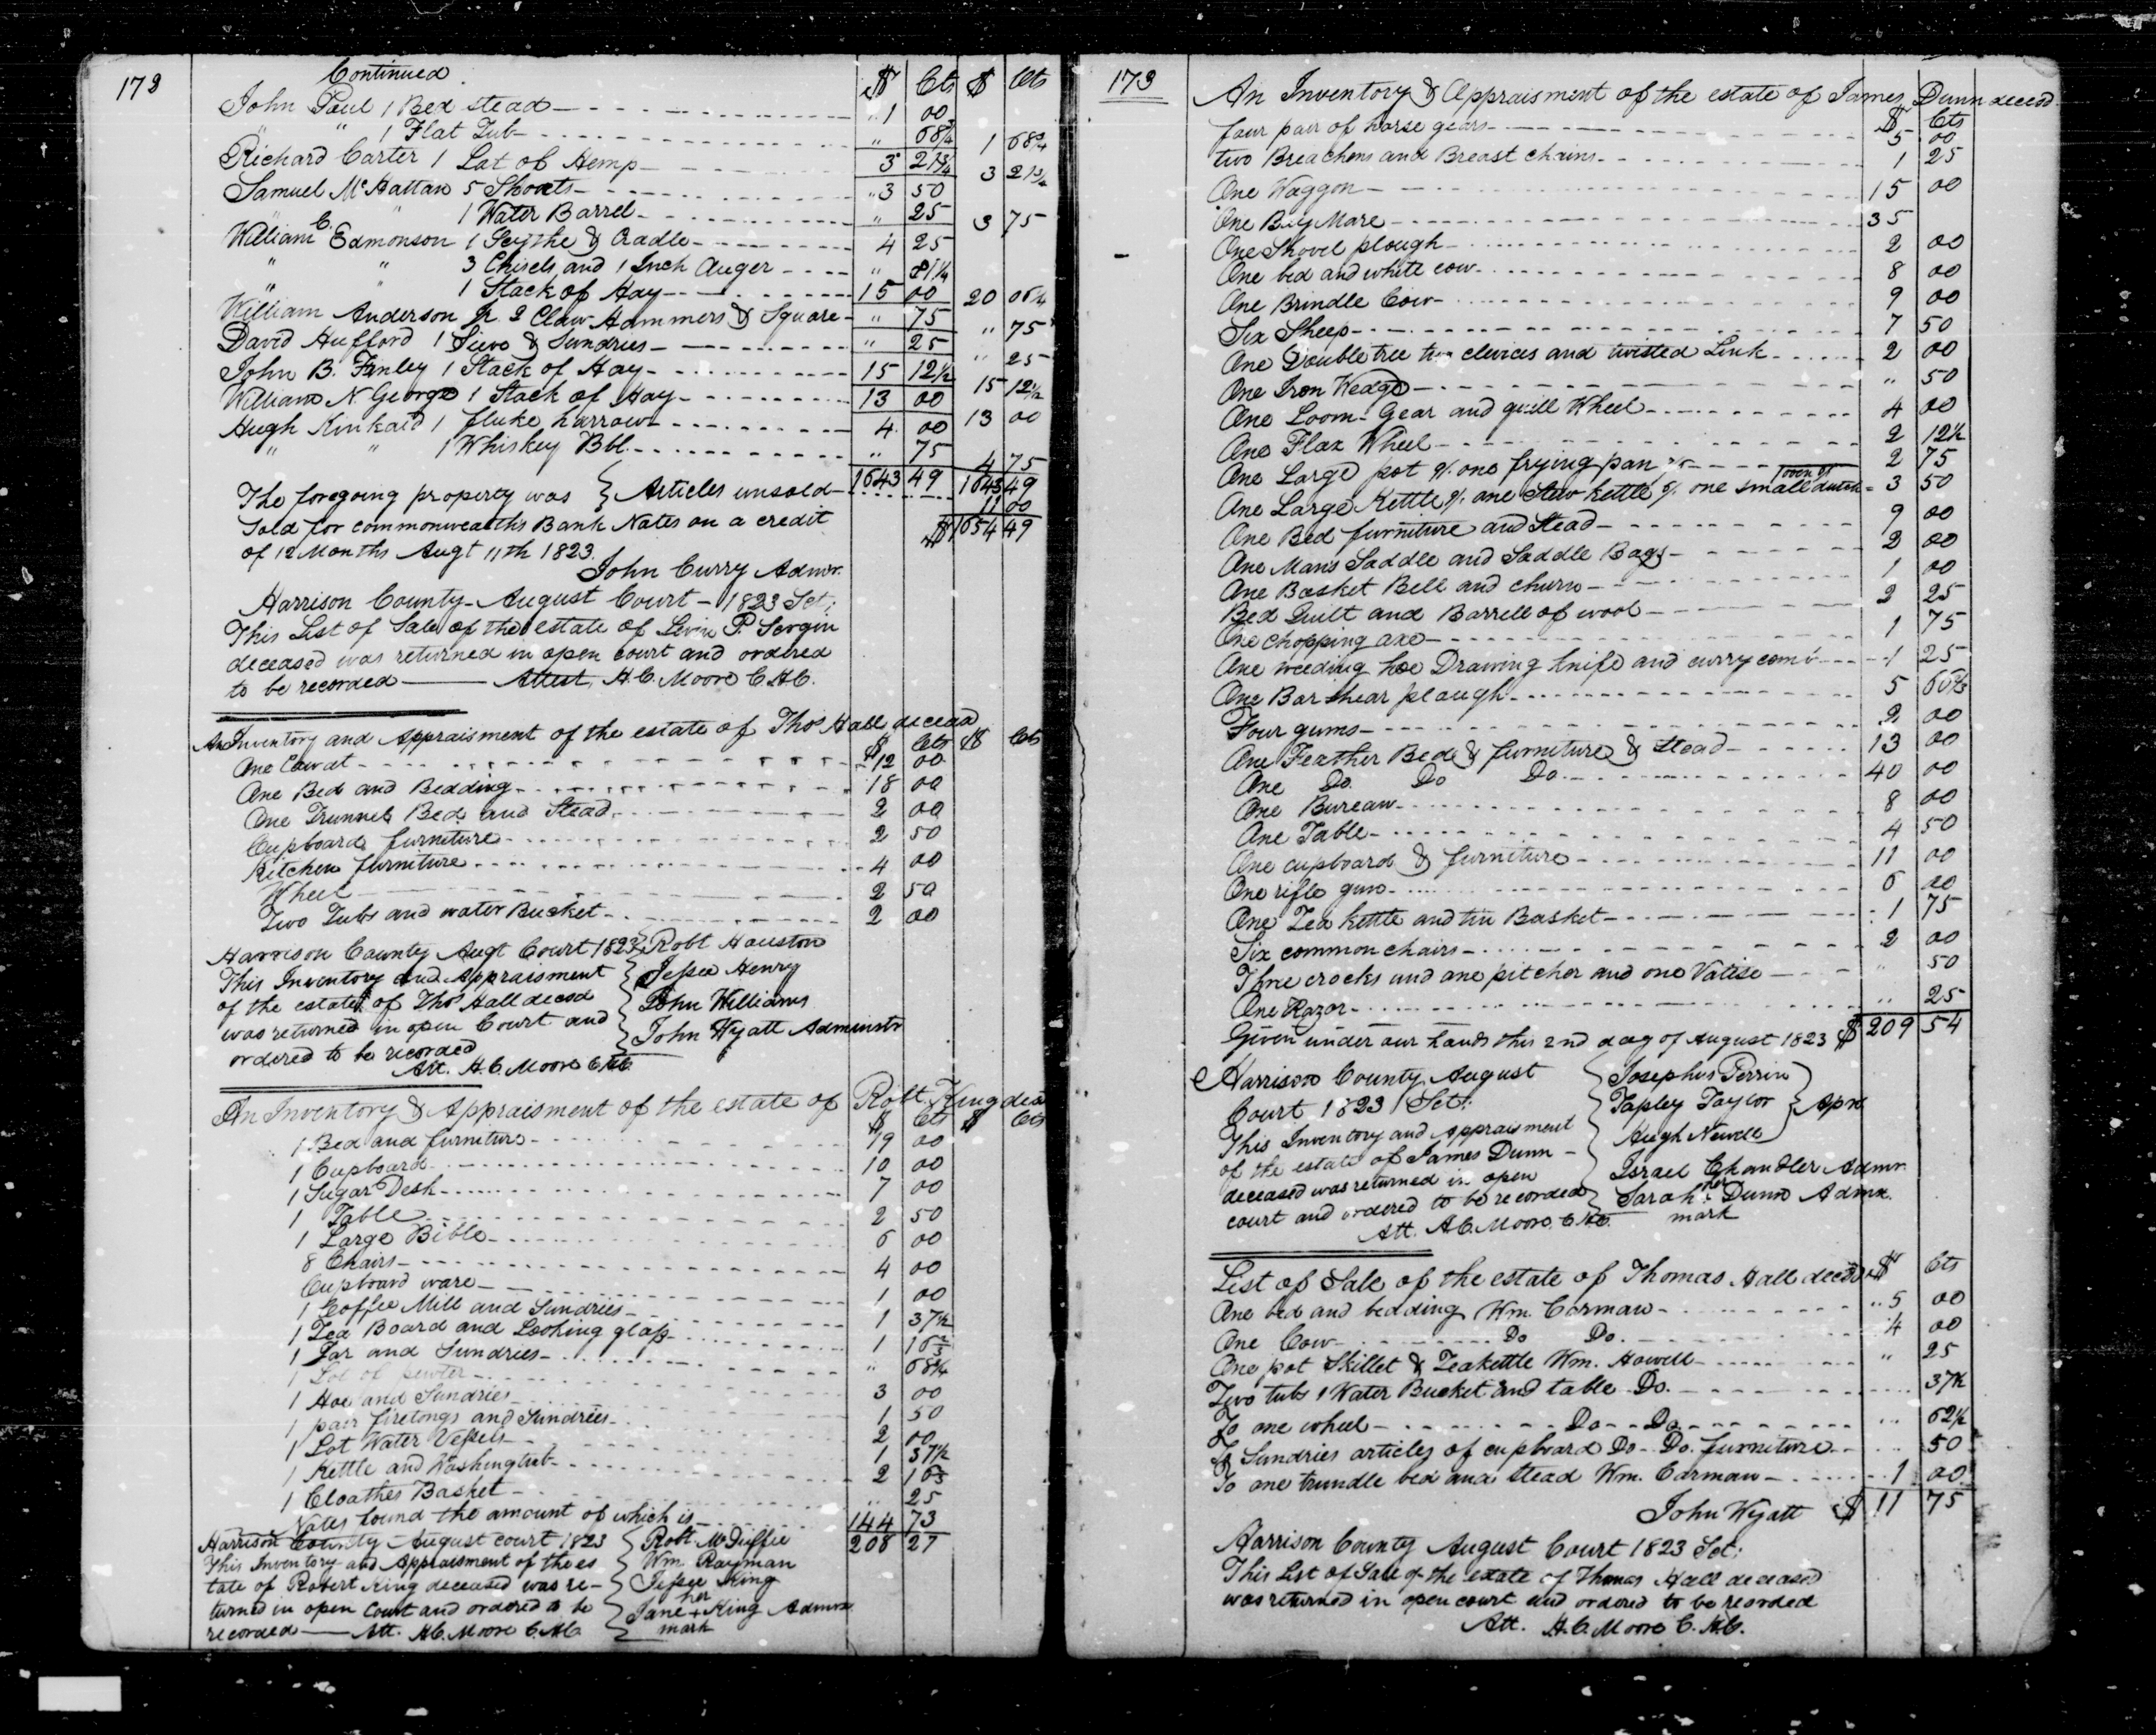 172
Continued
$ Cts $ Cts
John Paul 1 Bed stead " 1 00
" " 1 Flat Tub " 68¾ 1 68¾
Richard Carter 1 Lot of Hemp 3 21¾ 3 21¾
Samuel McHattan 5 Shoats " 3 50
" " 1 Water Barrel " 25 3 75
William C. Edmonson 1 Scythe & Cradle 4 25
" " 3 Chisels and 1 Inch Auger " 81¼
" " 1 Stack of Hay 15 00 20 06¼
William Anderson Jr. 2 Claw Hammers & Square " 75 " 75
David Hufford 1 Sieve & Sundries " 25 " 25
John B. Finley 1 Stack of Hay 15 12½ 15 12½
William N George 1 Stack of Hay 13 00 13 00
Hugh Kinkaid 1 fluke harrow 4 00
" " 1 Whiskey Bbl. " 75 4 75
1643 49 1643 49
The foregoing property was } Articles unsold 11 00
Sold for commonwealths Bank Notes on a credit $ 1654 49
of 12 Months Augt 11th 1823.
John Curry Admr.
Harrison County - August Court - 1823 Sct:
This List of Sale of the estate of Levin P.
deceased was returned in open court and ordered
to be recorded Attest, H.C. Moore C.H.C.
An Inventory and Appraisment of the estate of Thos Hall decead
$ Cts $ Cts
One Cow at $12 00
One Bed and Bedding 18 00
One Trunnel Bed and Stead 2 00
Cupboard furniture 2 50
Kitchen furniture 4 00
Wheel 2 50
Two Tubs and water Bucket 2 00
Harrison County Augt Court 1823 } Robt Houston
This Inventory and Appraisment } Jessee Henry
of the estate of Thos Hall decsd } John Williams
was returned in open Court and } John Wyatt Adminstr
ordered to be recorded
Att. H.C. Moore C.H.C.
An Inventory & Appraisment of the estate of Robt. King decd
$ Cts $ Cts
1 Bed and furniture 19 00
1 Cupboard 10 00
1 Sugar Desk 7 00
1 Table 2 50
1 Large Bible 6 00
8 Chairs 4 00
Cupboard ware 1 00
1 Coffee Mill and Sundries 1 37½
1 Tea Board and Looking glass 1 16⅔
1 Jar and Sundries " 68¾
1 Lot of pewter 3 00
1 Hoe and Sundries 1 50
1 pair firetongs and Sundries 2 00
1 Lot Water Vessels 1 37½
1 Kettle and Washingtub 2 16⅔
1 Cloathes Basket " 25
Notes found the amount of which is 144 73
Harrison County - August court 1823 } Robt. McDuffie 208 27
This Inventory and Appraisment of the es } Wm. Rayman
tate of Robert King deceased was re- } Jessee King
turned in open Court and ordered to be } Jane her + mark King Admrx
recorded Att. H.C. Moore C.H.C.
173
An Inventory & Appraisment of the estate of James Dunn decesd
$ Cts
four pair of horse gears 5 00
two Breachens and Breast chains 1 25
One Waggon 15 00
One Bay Mare 35
One Shovel plough 2 00
One bed and white cow 8 00
One Brindle Cow 9 00
Six Sheep 7 50
One Double tree two clevices and twisted Link 2 00
One Iron Wedge " 50
One Loom Gear and quill Wheel 4 00
One Flax Wheel 2 12½
One Large pot one frying pan 2 75
One Large Kettle one Stew kettle one small dutch oven 3 50
One Bed furniture and Stead 9 00
One Mans Saddle and Saddle Bags 2 00
One Basket Bell and churn 1 00
Bed Quilt and Barrell of wool 2 25
One chopping axe 1 75
One weeding hoe Drawing knife and curry comb 1 25
One Bar shear plough 5 66⅔
Four gums 2 00
One Feather Bed & furniture & Stead 13 00
One Do. Do Do 40 00
One Bureau 8 00
One Table 4 50
One cupboard & furniture 11 00
One rifle gun 6 00
One Tea kettle and tin Basket 1 75
Six common chairs 2 00
Three crocks and one pitcher and one Valise " 50
One Razor " 25
Given under our hands this 2nd day of August 1823 $ 209 54
Harrison County August } Josephus Perrin
Court 1823 Sct: } Tapley Taylor } Aprs
This Inventory and appraisment } Hugh Newell
of the estate of James Dunn } Israel Chandler Admr.
deceased was returned in open } Sarah her mark Dunn Admx.
court and ordered to be recorded
Att. H.C. Moore C.H.C.
List of Sale of the estate of Thomas Hall decesd $ Cts
One bed and bedding Wm. Carman 5 00
One Cow Do Do. 4 00
One pot Skillet & Teakettle Wm. Howell " 25
Two tubs 1 Water Bucket and table Do. 37½
To one wheel Do Do 62½
To Sundries articles of cupboard Do Do. furniture 50
To one trundle bed and stead Wm. Carman 1 00
John Wyatt $ 11 75
Harrison County August Court 1823 Sct:
This List of Sale of the estate of Thomas Hall deceased
was returned in open court and ordered to be recorded
Att. H.C. Moore C.H.C.